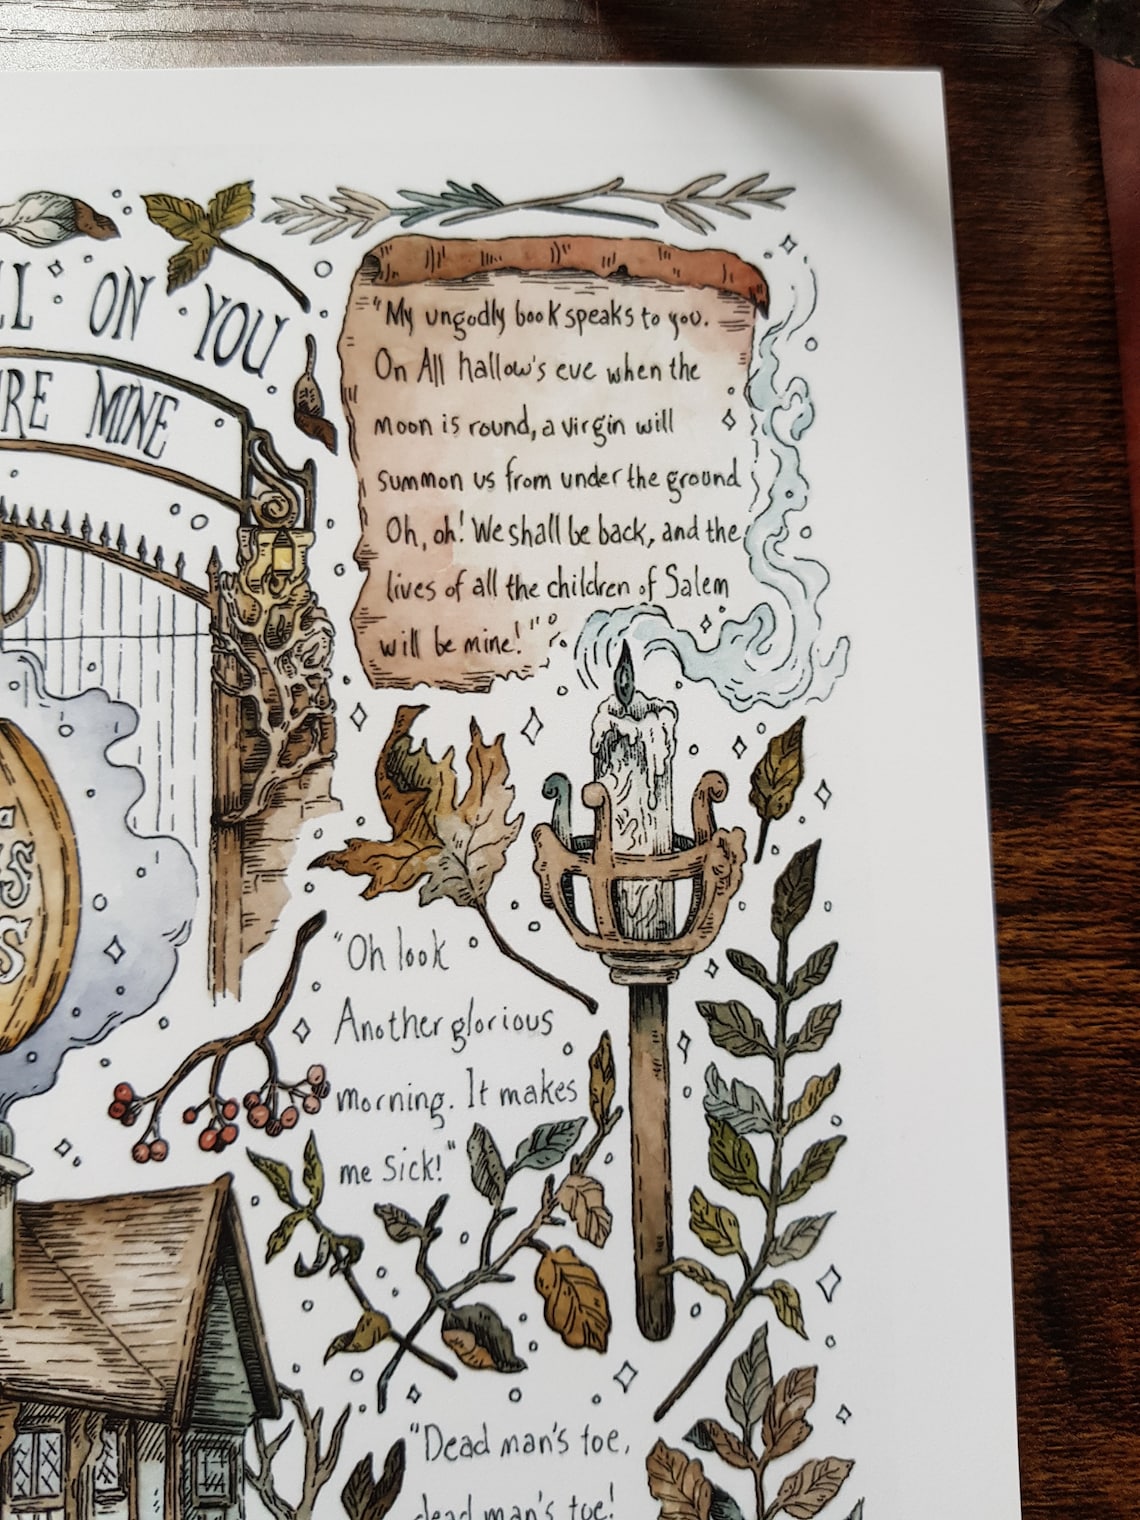 ON YOU
MINE
"My ungodly book speaks to you.
On All hallow's eve when the
moon is round, a virgin will
summon us from under the ground
Oh, oh! We shall be back, and the
lives of all the children of Salem
will be mine!"
"Oh look
Another glorious
morning. It makes
me sick!"
"Dead man's toe,
dead man's toe!